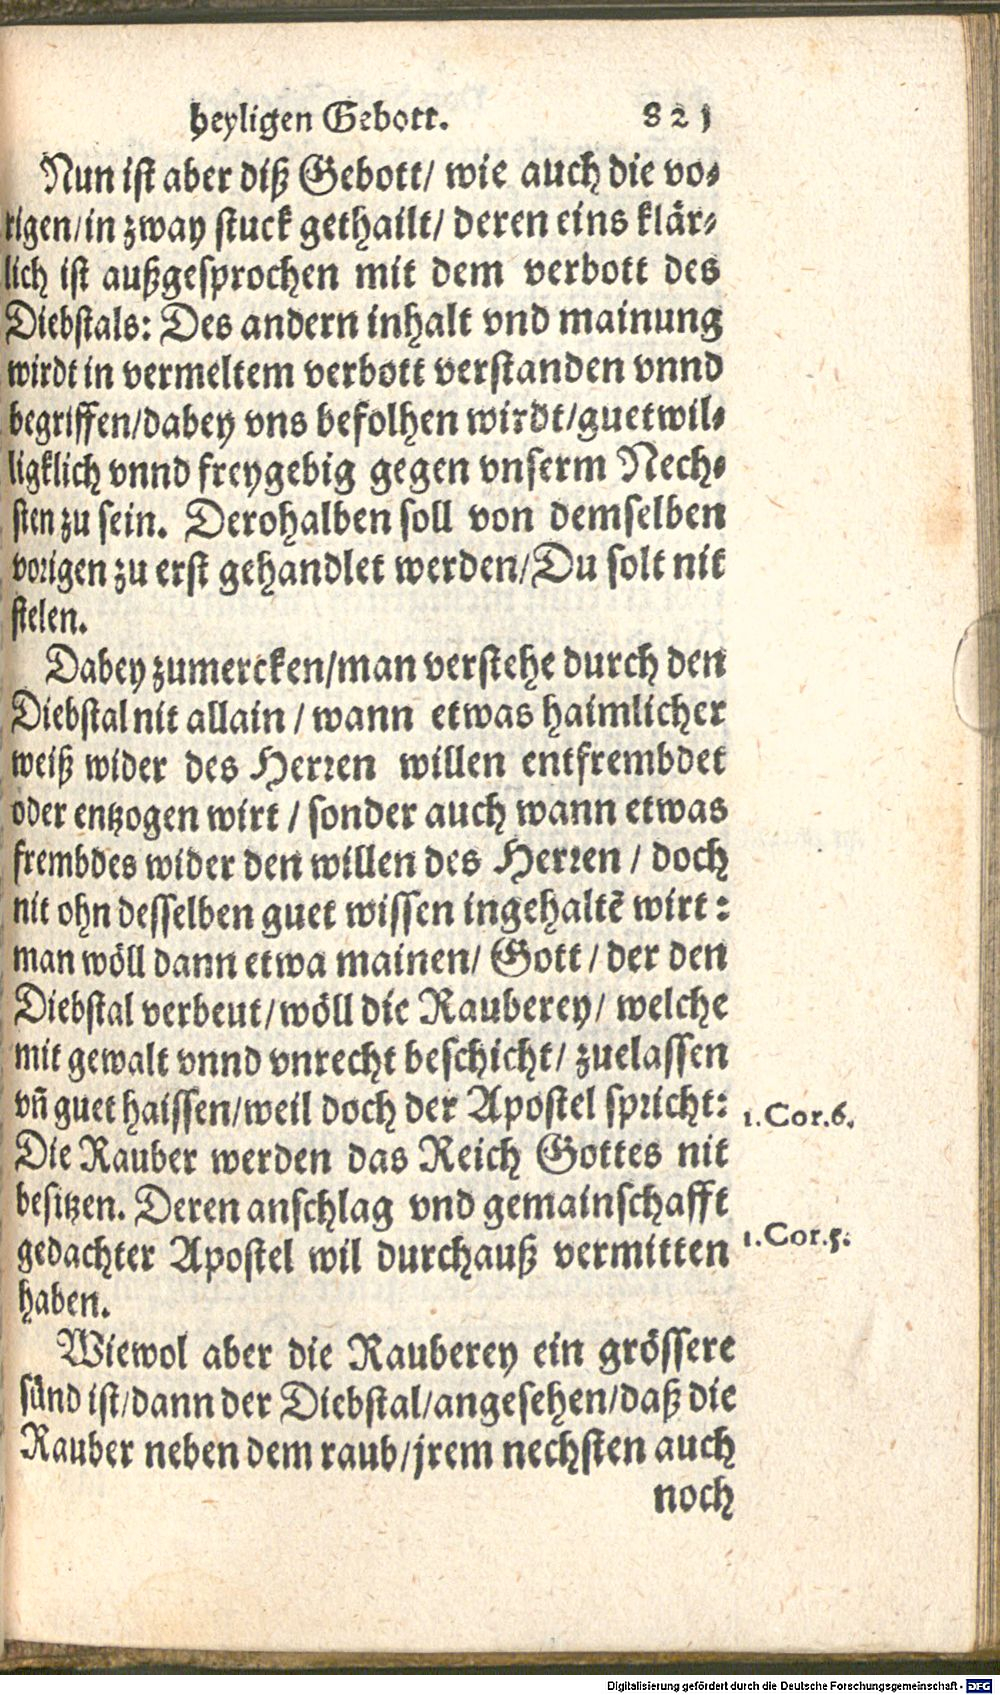 heyligen Gebott. 821
Nun ist aber diß Gebott/ wie auch die vo⸗
rigen/in zway stuck gethailt/ deren eins klär⸗
lich ist außgesprochen mit dem verbott des
Diebstals: Des andern inhalt vnd mainung
wirdt in vermeltem verbott verstanden vnnd
begriffen/dabey vns befolhen wirdt/guetwil⸗
ligklich vnnd freygebig gegen vnserm Nech⸗
sten zu sein. Derohalben soll von demselben
vorigen zu erst gehandlet werden/Du solt nit
stelen.
Dabey zumercken/man verstehe durch den
Diebstal nit allain / wann etwas haimlicher
weiß wider des Herren willen entfrembdet
oder entzogen wirt / sonder auch wann etwas
frembdes wider den willen des Herren / doch
nit ohn desselben guet wissen ingehaltẽ wirt:
man wöll dann etwa mainen/ Gott / der den
Diebstal verbeut/wöll die Rauberey/ welche
mit gewalt vnnd vnrecht beschicht/ zuelassen
vñ guet haissen/weil doch der Apostel spricht: 1.Cor.6.
Die Rauber werden das Reich Gottes nit
besitzen. Deren anschlag vnd gemainschafft
gedachter Apostel wil durchauß vermitten 1.Cor.5.
haben.
Wiewol aber die Rauberey ein grössere
sünd ist/dann der Diebstal/angesehen/daß die
Rauber neben dem raub/jrem nechsten auch
noch
Digitalisierung gefördert durch die Deutsche Forschungsgemeinschaft - DFG